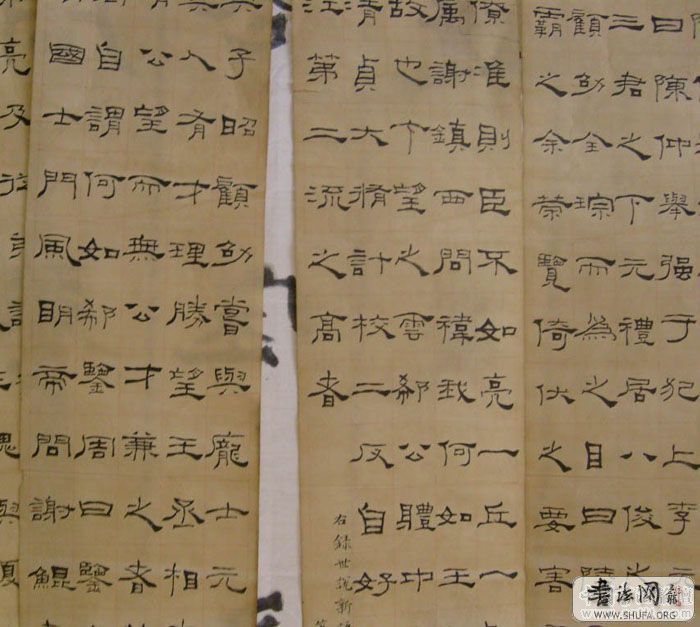 曰陳仲舉强于犯上李元
三君之下元禮居八俊之
顧劭全琮而為之目曰陸
霸之余榮覽倚伏之要害
准則臣不如亮一丘一
謝鎮西問褘我何如王
故也卞望之雲郗公體中
清貞大脩計校二反自好
江第二流之高者
右錄世說新語
子昭顧劭嘗與龐士元
人有才理勝望王丞相
公望而無公才兼之者
自謂何如郗鑒周曰鑒
國士門風明帝問謝鯤
亮及
书法网
WWW.SHUFA.ORG